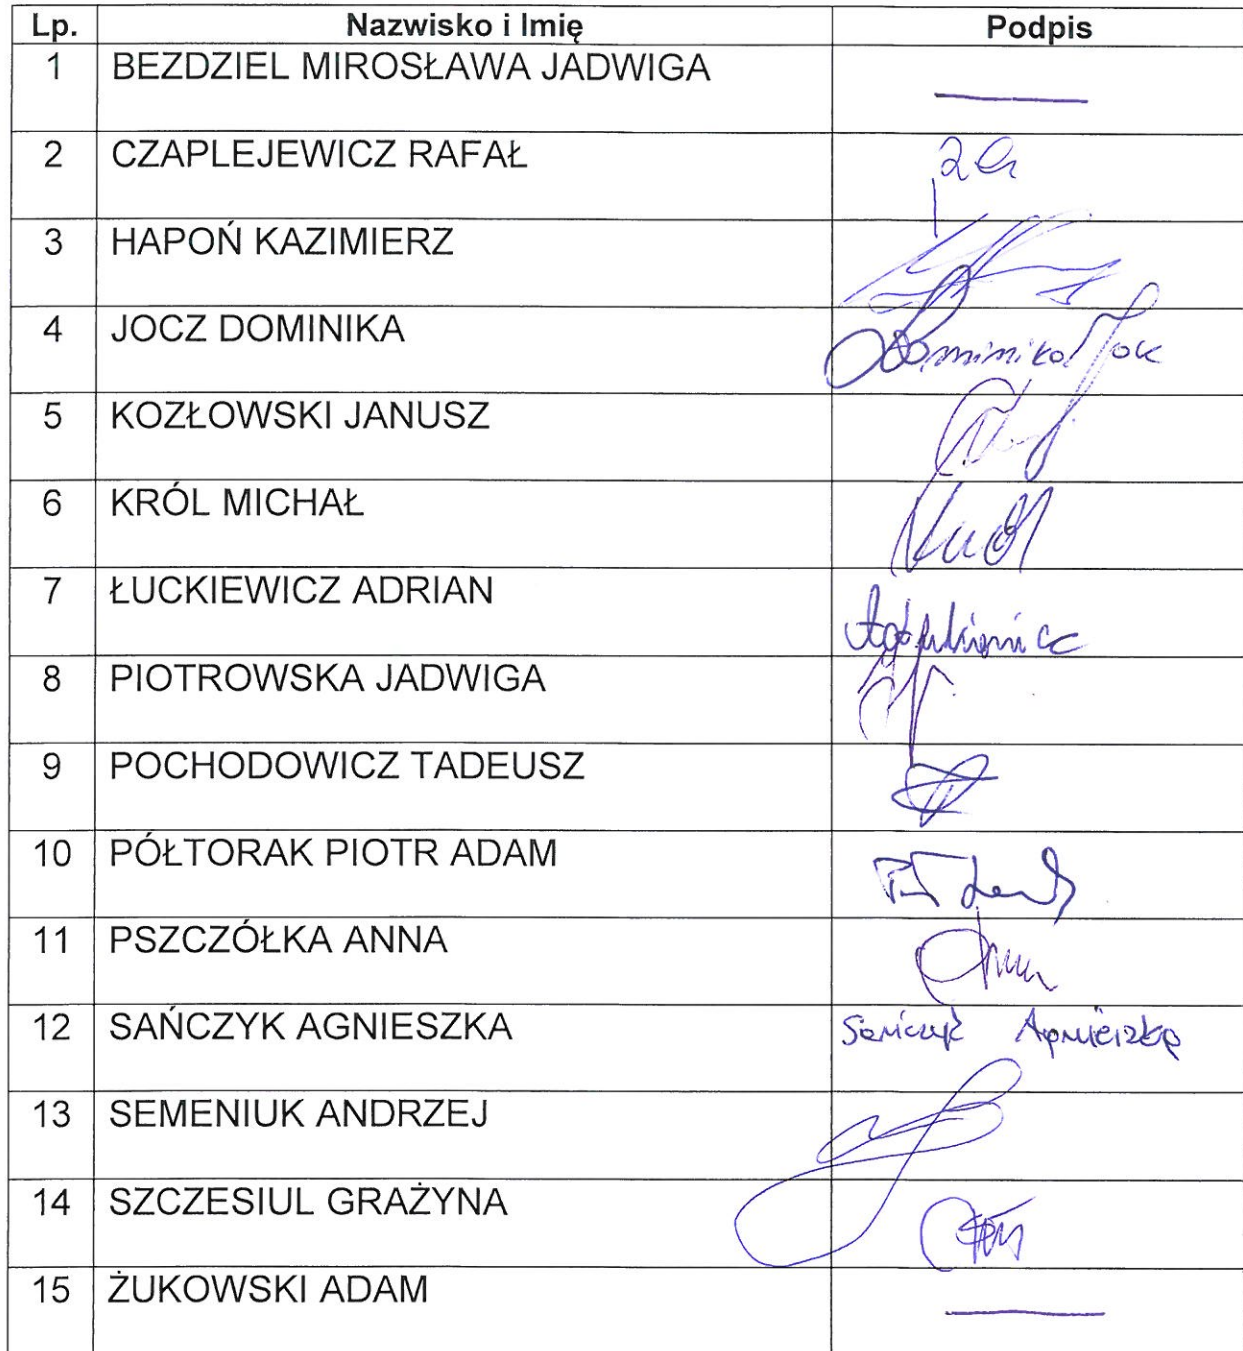 Lp. Nazwisko i Imię Podpis
1 BEZDZIEL MIROSŁAWA JADWIGA
2 CZAPLEJEWICZ RAFAŁ
3 HAPOŃ KAZIMIERZ
4 JOCZ DOMINIKA Dominika Jocz
5 KOZŁOWSKI JANUSZ
6 KRÓL MICHAŁ
7 ŁUCKIEWICZ ADRIAN
8 PIOTROWSKA JADWIGA
9 POCHODOWICZ TADEUSZ
10 PÓŁTORAK PIOTR ADAM
11 PSZCZÓŁKA ANNA
12 SAŃCZYK AGNIESZKA Sańczyk Agnieszka
13 SEMENIUK ANDRZEJ
14 SZCZESIUL GRAŻYNA
15 ŻUKOWSKI ADAM